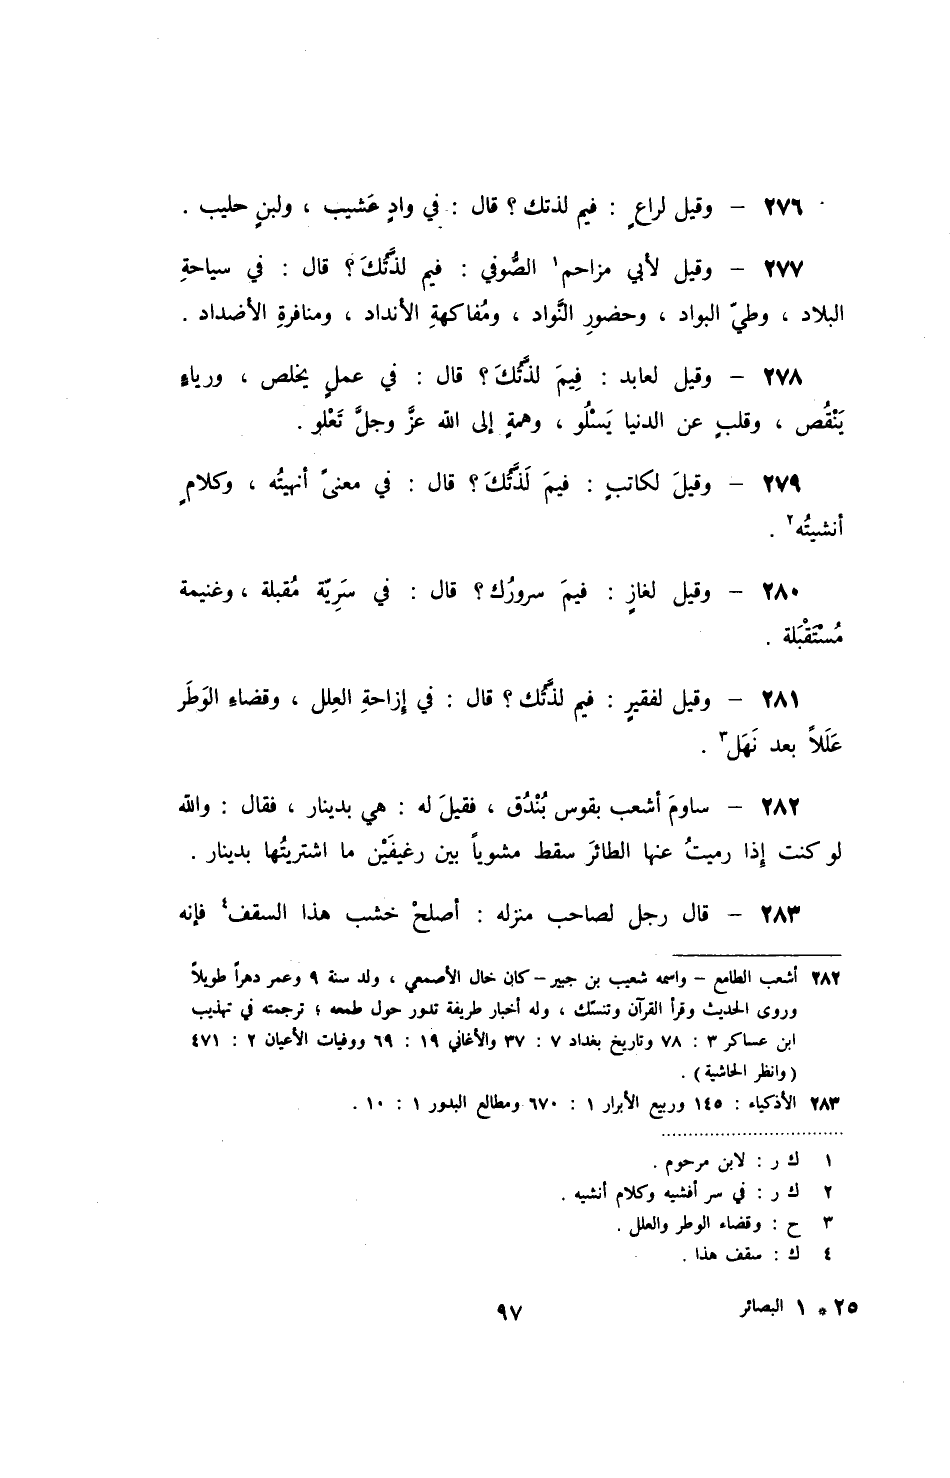 ٢٧٦ – وقيل لراعٍ : فيم لذتك ؟ قال : في وادٍ عَشيب ، ولبنٍ حليب .
٢٧٧ – وقيل لأبي مزاحم١ الصُّوفي : فيم لذَّتُكَ ؟ قال : في سياحةِ
البلاد ، وطيّ البواد ، وحضورِ النَّواد ، ومُفاكهةِ الأنداد ، ومنافرةِ الأضداد .
٢٧٨ – وقيل لعابد : فِيمَ لذَّتُكَ ؟ قال : في عملٍ يخلص ، ورياءٍ
يَنْقُص ، وقلبٍ عن الدنيا يَسْلُو ، وهمةٍ إلى الله عزَّ وجلَّ تَعْلو .
٢٧٩ – وقيلَ لكاتبٍ : فيمَ لَذَّتُكَ ؟ قال : في معنىً أنهيتُه ، وكلامٍ
أنشيتُه٢ .
٢٨٠ – وقيل لغازٍ : فيمَ سرورُك ؟ قال : في سَرِيّة مُقبلة ، وغنيمة
مُسْتَقْبَلة .
٢٨١ – وقيل لفقيرٍ : فيم لذتُك ؟ قال : في إزاحةِ العِلل ، وقضاءِ الوَطَر
عَلَلاً بعد نَهَل٣ .
٢٨٢ – ساومَ أشعب بقوس بُنْدُق ، فقيلَ له : هي بدينار ، فقال : والله
لو كنت إذا رميتُ عنها الطائرَ سقط مشوياً بين رغيفَيْن ما اشتريتُها بدينار .
٢٨٣ – قال رجل لصاحب منزله : أصلحْ خشب هذا السقف٤ فإنه
٢٨٢ أشعب الطامع – واسمه شعيب بن جبير – كان خال الأصمعي ، ولد سنة ٩ وعمر دهراً طويلاً
وروى الحديث وقرأ القرآن وتنسّك ، وله أخبار طريفة تدور حول طمعه ؛ ترجمته في تهذيب
ابن عساكر ٣ : ٧٨ وتاريخ بغداد ٧ : ٣٧ والأغاني ١٩ : ٦٩ ووفيات الأعيان ٢ : ٤٧١
(وانظر الحاشية) .
٢٨٣ الأذكياء : ١٤٥ وربيع الأبرار ١ : ٦٧٠ ومطالع البدور ١ : ١٠ .
١ ك ر : لابن مرحوم .
٢ ك ر : في سر أفشيه وكلام أنشيه .
٣ ح : وقضاء الوطر والعلل .
٤ ك : سقف هذا .
٢٥ * ١ البصائر ٩٧